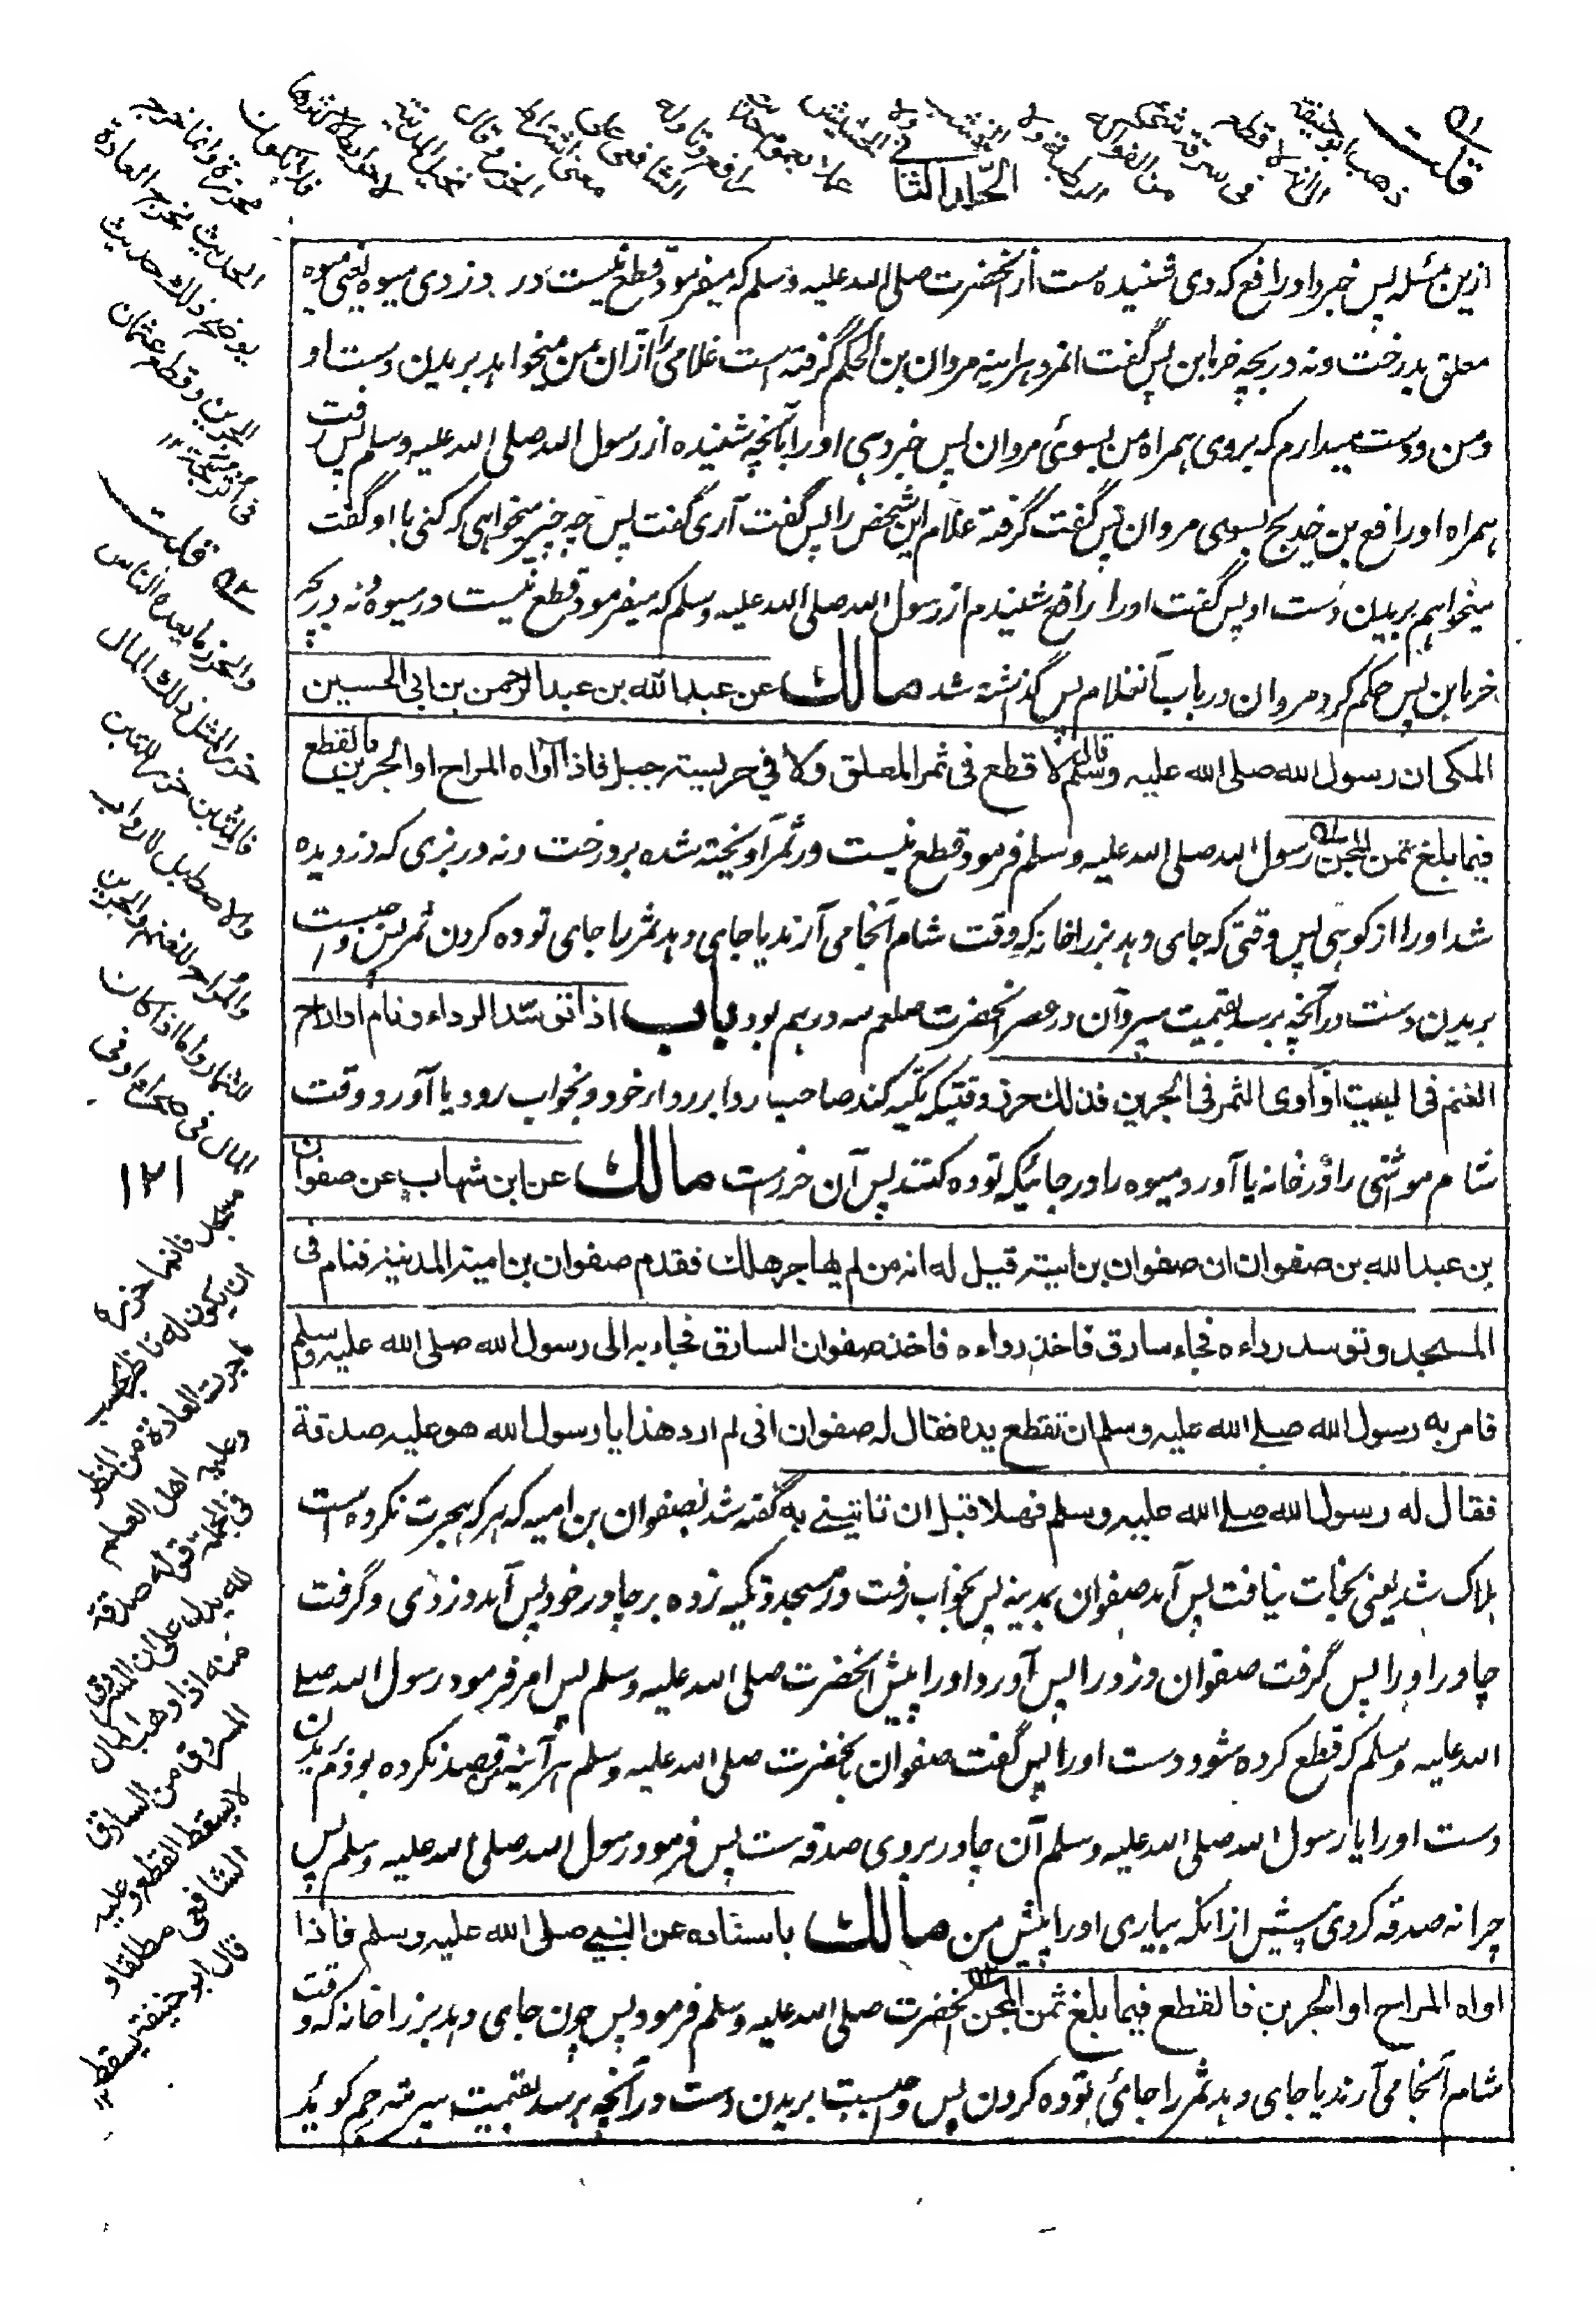 الجلد الثانی
ازین مسئله پس خبر داد رافع که وی شنیده ست از آنحضرت صلی الله علیه وسلم که میفرمود قطع نیست در دزدی میوه یعنی میوه
معلق بدرخت ونه در بچه خرما بن پس گفت آنمرد هر آئینه مروان بن الحکم گرفته است غلامی را از آن من میخواهد بریدن دست او
ومن دوست میدارم که بروی همراه من بسوئ مروان پس خبر دهی او را بآنچه شنیده از رسول الله صلی الله علیه وسلم پس رفت
همراه او رافع بن خدیج بسوی مروان پس گفت گرفتۀ غلام این شخص را پس گفت آری گفت پس چه چیز میخواهی که کنی با او گفت
میخواهم بریدن دست او پس گفت او را رافع شنیدم از رسول الله صلی الله علیه وسلم که میفرمود قطع نیست در میوه ونه در بچۀ
خرما بن پس حکم کرد مروان در باب آنغلام پس گذاشته شد مالك عن عبد الله بن عبد الرحمن بن ابی الحسین
المکی ان رسول الله صلی الله علیه وسلم قال لا قطع فی ثمر المعلق ولا فی حریسته جبل فاذا آواه المراح او الجرین فالقطع
فیما بلغ ثمن المجن رسول الله صلی الله علیه وسلم فرمود قطع نیست در ثمر آویخته شده بر درخت ونه در بزی که دزدیده
شد او را از کوهی پس وقتی که جای دهد بز را خانه که وقت شام آنجا می آرند یا جای دهد ثمر را جای توده کردن ثمر پس واجبست
بریدن دست در آنچه برسد بقیمت سپر وآن در عصر آنحضرت صلعم سه درهم بود باب اذا توسد الرداء ونام او الاراح
الغنم فی البیت او آوی الثمر فی الجرین فذلك حرز وقتیکه تکیه کند صاحب ردا بر ردای خود وبخواب رود یا آورد وقت
شام مواشی را در خانه یا آورد میوه را در جائیکه توده کنند پس آن حرز ست مالك عن ابن شهاب عن صفوان
بن عبد الله بن صفوان ان صفوان بن امیته قیل له انه من لم یهاجر هلك فقدم صفوان بن امیته المدینة فنام فی
المسجد وتوسد رداءه فجاء سارق فاخذ رداءه فاخذ صفوان السارق فجاء به الی رسول الله صلی الله علیه وسلم
فامر به رسول الله صلے الله علیه وسلم ان تقطع یده فقال له صفوان انی لم ارد هذا یا رسول الله هو علیه صدقة
فقال له رسول الله صلے الله علیه وسلم فهلا قبل ان تاتینے به گفته شد بصفوان بن امیه که هر که هجرت نکرده است
هلاک شد یعنی نجات نیافت پس آمد صفوان بمدینه پس بخواب رفت در مسجد وتکیه زده بر چادر خود پس آمد دزدی وگرفت
چادر او را پس گرفت صفوان دزد را پس آورد او را پیش آنحضرت صلی الله علیه وسلم پس امر فرمود رسول الله صلے
الله علیه وسلم که قطع کرده شود دست او را پس گفت صفوان بآنحضرت صلی الله علیه وسلم هر آئینه من قصد نکرده بودم بریدن
دست او را یا رسول الله صلی الله علیه وسلم آن چادر بروی صدقه ست پس فرمود رسول الله صلی الله علیه وسلم پس
چرا نه صدقه کردی پیش از آنکه بیاری او را پیش من مالك باسناده عن النبے صلی الله علیه وسلم فاذا
اواه المراح او الجرین فالقطع فیما بلغ ثمن المجن آنحضرت صلی الله علیه وسلم فرمود پس چون جای دهد بز را خانه که وقت
شام آنجا می آرند یا جای دهد ثمر را جائ توده کردن پس واجبست بریدن دست در آنچه برسد بقیمت سپر مترجم گوید
محرزة وانما خرج
الحدیث مخرج العادة
یوضح ذلك حدیث
الجرین وقطع عثمان
فی اترجة ۱۲
۵۲ قلت
والحرز ما یعده الناس
حرزا لمثل ذلك المال
فالتبن حرز للتبن
والاصطبل للدواب
والمراح للغنم والجرین
للثمار واما اذا کان
المال فی صحراء او فی
۱۲۱
مسجد فانما حرزه
ان یکون له ناظر بحسب
ما جرت العادة من النظر
وعلیه اهل العلم
فی الجملة قوله صدقة
له یدل علی ان المسروق
منه اذا وهب المال
المسروق من السارق
لا یسقط القطع وعلیه
الشافعی مطلقا و
قال ابو حنیفة یسقط ۱۲